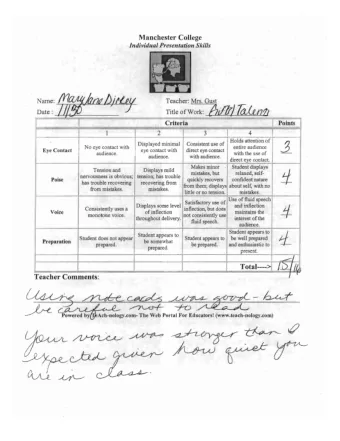 Manchester College
Individual Presentation Skills
Name: Mary Jane Dickey Teacher: Mrs. Gust
Date: 11/30 Title of Work: Talent
Criteria Points
1 2 3 4
Eye Contact
No eye contact with audience.
Displayed minimal eye contact with audience.
Consistent use of direct eye contact with audience.
Holds attention of entire audience with the use of direct eye contact.
3
Poise
Tension and nervousness is obvious; has trouble recovering from mistakes.
Displays mild tension; has trouble recovering from mistakes.
Makes minor mistakes, but quickly recovers from them; displays little or no tension.
Student displays relaxed, self-confident nature about self, with no mistakes.
4
Voice
Consistently uses a monotone voice.
Displays some level of inflection throughout delivery.
Satisfactory use of inflection, but does not consistently use fluid speech.
Use of fluid speech and inflection maintains the interest of the audience.
4
Preparation
Student does not appear prepared.
Student appears to be somewhat prepared.
Student appears to be prepared.
Student appears to be well prepared and enthusiastic to present.
4
Total----> 15/16
Teacher Comments:
Using notecards was good - but
be careful not to read
Powered by TeAch-nology.com- The Web Portal For Educators! (www.teach-nology.com)
Your voice was stronger than I
expected given how quiet you
are in class.